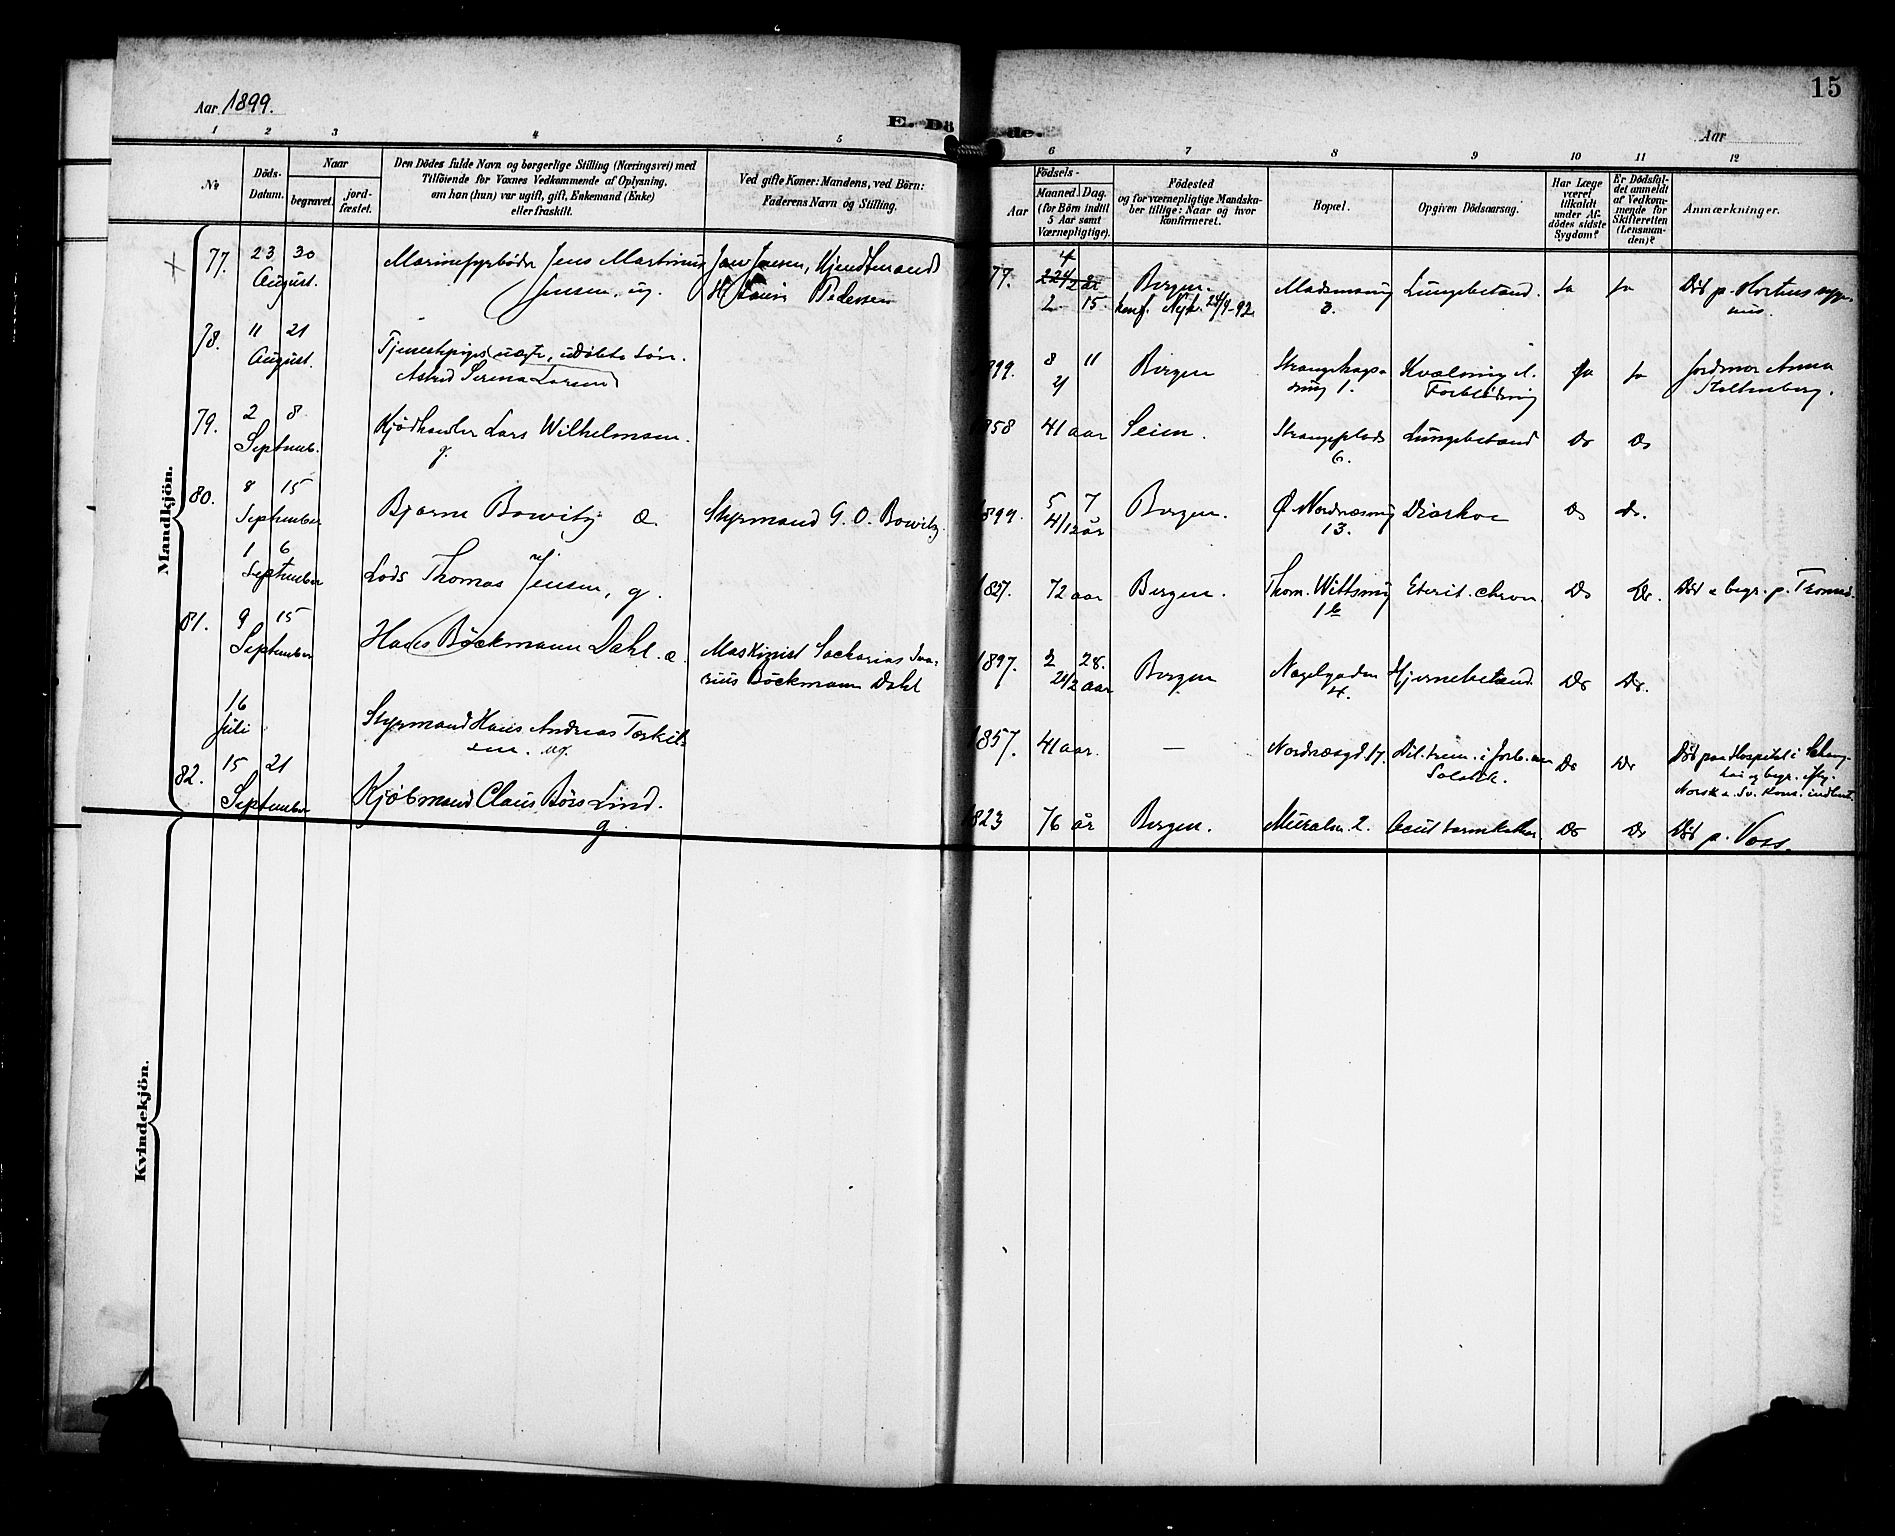 15
Aar 1899.
E. Dö de.
Aar
1 2 3 4 5 6 7 8 9 10 11 12
No
Döds-
Datum.
Naar
begravet.
jord-
fæstet.
Den Dödes fulde Navn og borgerlige Stilling (Næringsvei) med
Tilföiende for Voxnes Vedkommende af Oplysning,
om han (hun) var ugift, gift, Enkemand (Enke)
eller fraskilt.
Ved gifte Koner: Mandens, ved Börn:
Faderens Navn og Stilling.
Födsels-
Aar
Maaned. Dag.
(for Börn indtil
5 Aar samt
Værnepligtige).
Födested
og for værnepligtige Mandska-
ber tillige: Naar og hvor
konfirmeret.
Bopæl.
Opgiven Dödsaarsag.
Har Læge
været
tilkaldt
under Af-
dödes sidste
Sygdom?
Er Dödsfal-
det anmeldt
af Vedkom-
mende for
Skifteretten
(Lensman-
den)?
Anmærkninger.
Mandkjön.
77. 23 30
August.
Jens Martinius
Jensen, ug.
Jensen,
Pedersen
77. 4
2 15
Bergen.
konf. Nyk. 24/9-92.
3.
Lungebetænd.
ja ja
Död p. Hortens
78. 11 21
August.
uægte, udöbte sön.
Astrid Serina Larsen
899. 8 11
Bergen
1.
Kvælning
Forblödning
ja ja
Jordmor Anna
Stoltenberg.
79. 2 8
Septemb.
Kjödhandler Lars Wilhelmsen.
g.
858 41 aar
Seim.
6.
Lungebetænd
Do Do
80. 8 15
September
Bjarne Bowitz æ.
Styrmand G. O. Bowitz.
899. 5 7
4/12 år
Bergen.
Ø. Nordnæsvei
13.
Diarhoe
Do Do.
1 6
September
Lods Thomas Jensen, g.
1827. 72 aar
Bergen.
Thom. Wittsvei
chron.
Do Do.
Död & begr. p.
81. 9 15
September
Hans Böckmann Dahl. æ.
Maskinist Sacharias
Böckmann Dahl
1897. 2 28.
2 1/2 aar
Bergen
Nagelgaden
4.
Hjernebetænd.
Do Do.
16
Juli
Styrmand Hans Andreas Torkil-
sen. ug.
1857. 41 aar.
—
Nordnæsgd 17.
Do Do
Död paa Hospital i Schang-
hai og begr. iflg.
Norsk & Sv. Kons. indber.
82. 15 21
September
Kjöbmand Claus Börs Lind.
g.
1823 76 år
Bergen.
Muralm. 2.
Acut tarmkathar.
Do Do
Död p. Voss.
Kvindekjön.